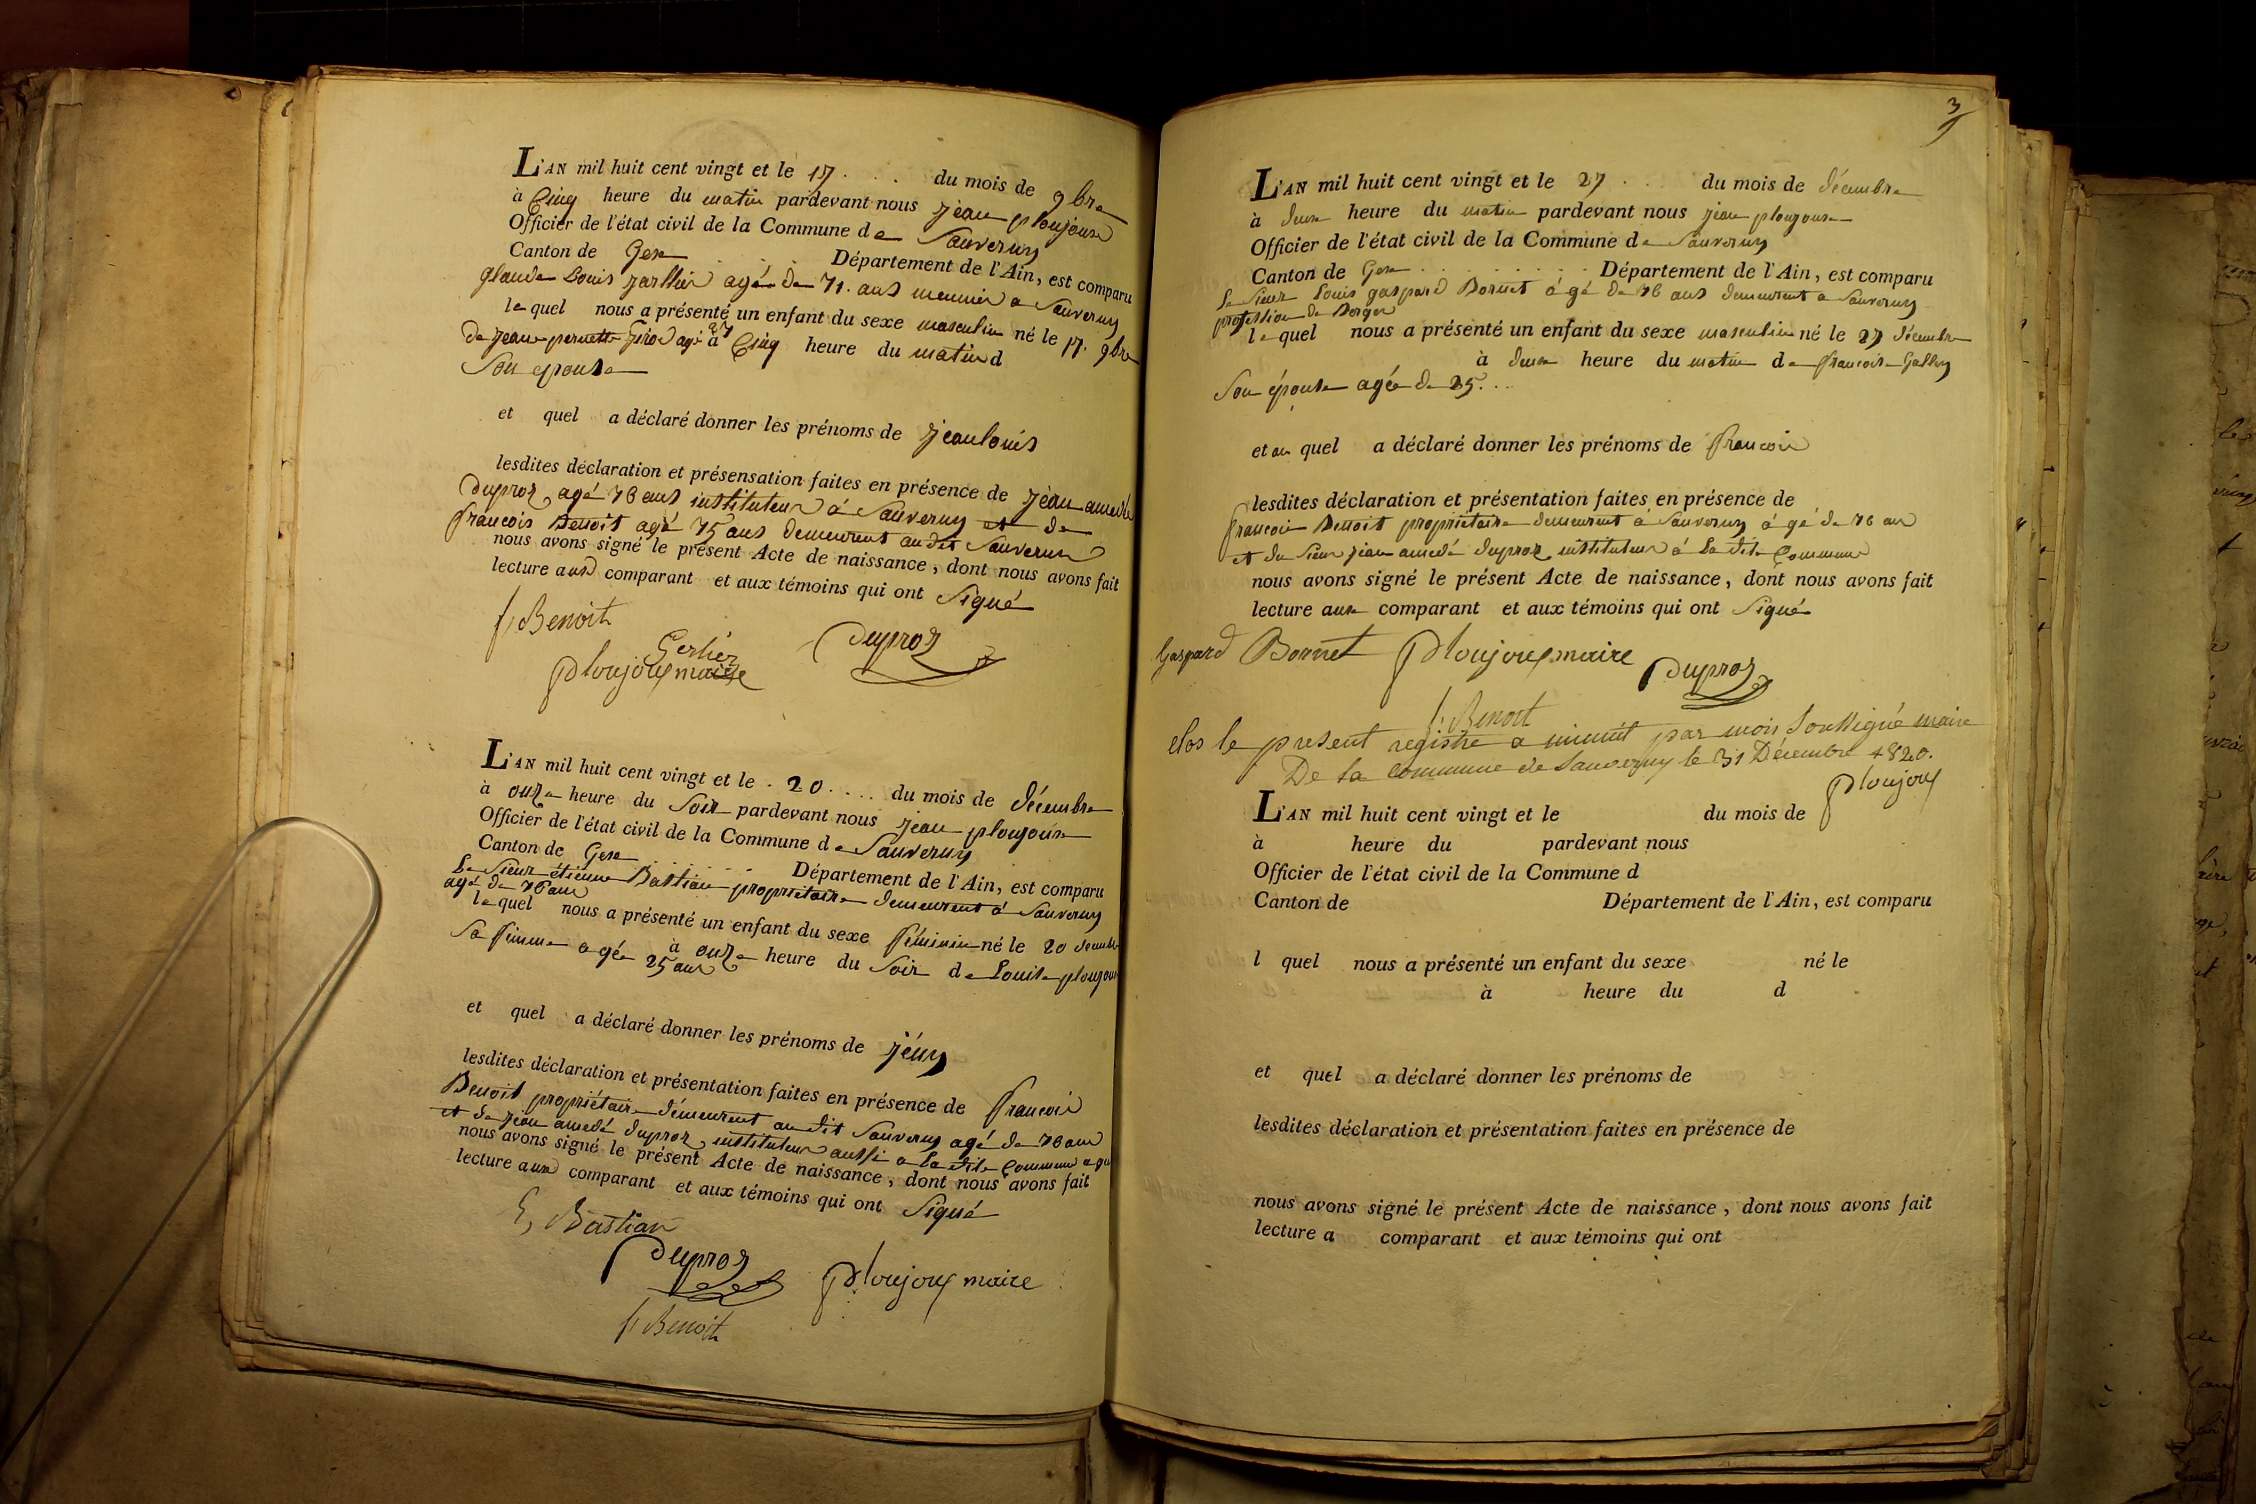 L'AN mil huit cent vingt et le 17 . . . du mois de 9bre
à Cinq heure du matin pardevant nous jean ploujoux
Officier de l'état civil de la Commune de Sauverny
Canton de Gex . . . Département de l'Ain, est comparu
glaude Louis agé de 71. ans meunier a Sauverny
le quel nous a présenté un enfant du sexe masculin né le 17. 9bre
à Cinq heure du matin d
de jean pernette girod agé 27
Son epouse
et quel a déclaré donner les prénoms de jean louis
lesdites déclaration et présensation faites en présence de jean amedé
duproz agé 76 ans instituteur à Sauverny et de
francois Benoit agé 75 ans demeurent au dit Sauverny
nous avons signé le présent Acte de naissance, dont nous avons fait
lecture aux comparant et aux témoins qui ont Signé
f, Benoit
Gerlier
Duproz
Ploujoux maire
L'AN mil huit cent vingt et le . 20 . . . . du mois de décembre
à onze heure du Soir pardevant nous jean ploujoux
Officier de l'état civil de la Commune de Sauverny
Canton de Gex . . . . . . Département de l'Ain, est comparu
Le Sieur étienne Bastian propriétaire demeurent à Sauverny
agé de 76 ans
le quel nous a présenté un enfant du sexe féminin né le 20 décembre
à onze heure du Soir de Louise ploujoux
Sa femme agée 25 ans
et quel a déclaré donner les prénoms de jény
lesdites déclaration et présentation faites en présence de francois
Benoit propriétaire demeurent au dit Sauverny agé de 76 ans
et de jean amedé duproz instituteur aussi a La dite Commune
nous avons signé le présent Acte de naissance, dont nous avons fait
lecture aux comparant et aux témoins qui ont Signé
E, Bastian
Duproz
Ploujoux maire
f, Benoit
3
L'AN mil huit cent vingt et le 27 . . . du mois de décembre
à deux heure du matin pardevant nous jean ploujoux
Officier de l'état civil de la Commune de Sauverny
Canton de Gex . . . . . . . . Département de l'Ain, est comparu
Le Sieur Louis gaspard Bornet ágé de 76 ans demeurent a Sauverny
profession de Berger
le quel nous a présenté un enfant du sexe masculin né le 27 décembre
à deux heure du matin de francoise Gallay
Son épouse agée de 25. . .
et au quel a déclaré donner les prénoms de francois
lesdites déclaration et présentation faites en présence de
francois Benoit propriétaire demeurent à Sauverny ágé de 76 ans
et du Sieur jean amedé duproz instituteur á La dite Commune
nous avons signé le présent Acte de naissance, dont nous avons fait
lecture aux comparant et aux témoins qui ont Signé
Gaspard Bornet Ploujoux maire
Duproz
f, Benoit
clos le present registre a minuit par moi Soussigné maire
De la commune de Sauverny le 31 Décembre 1820.
Ploujoux
L'AN mil huit cent vingt et le du mois de
à heure du pardevant nous
Officier de l'état civil de la Commune d
Canton de Département de l'Ain, est comparu
l quel nous a présenté un enfant du sexe né le
à heure du d
et quel a déclaré donner les prénoms de
lesdites déclaration et présentation faites en présence de
nous avons signé le présent Acte de naissance, dont nous avons fait
lecture a comparant et aux témoins qui ont